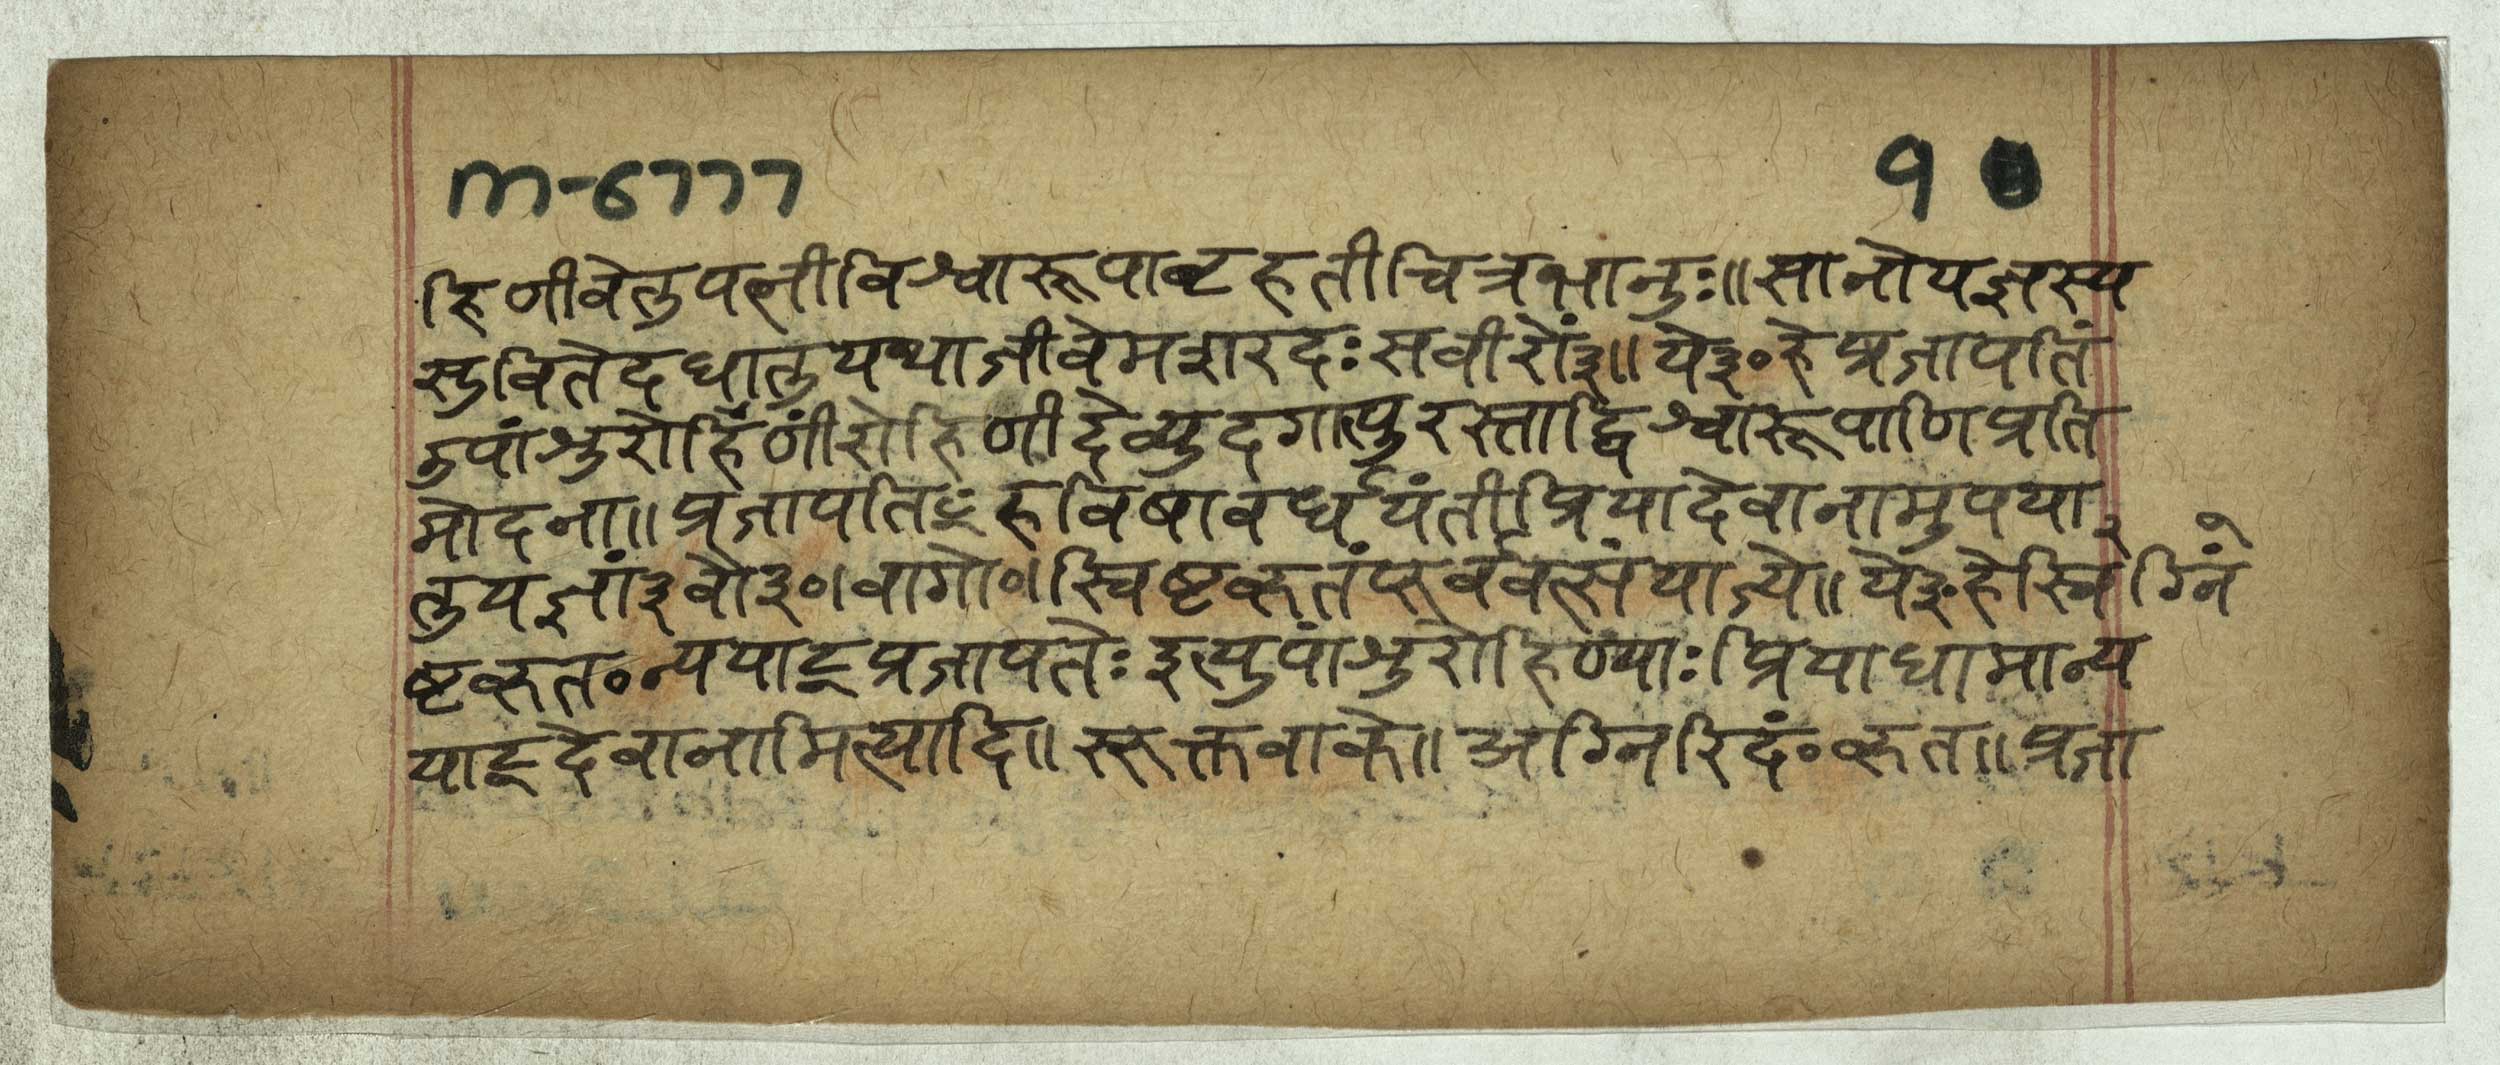 m-6777
१
हिणीवेतुपत्नीविश्वारूपाबृहतीचित्रभानुः॥सानोयज्ञस्य
सुवितेदधातुयथाजीवेमशरदःसवीरों३॥ये३०हेप्रजापतिं
उपांशुरोहिँणींरोहिणीदेव्युदगात्पुरस्ताद्विश्वारूपाणिप्रति
मोदना॥प्रजापतिꣳहविषावर्धयंतीप्रियादेवानामुपया
तुयज्ञां३वो३०।वागो०।स्विष्टकृतंपूर्ववत्संयाज्ये॥ये३हेस्विग्निं
ष्टकृत०न्ययाट्प्रजापतेःइत्युपांशुरोहिण्याःप्रियाधामान्य
याट्देवानामित्यादि॥सूक्तवाके॥अग्निरिदं०कृत॥प्रजा